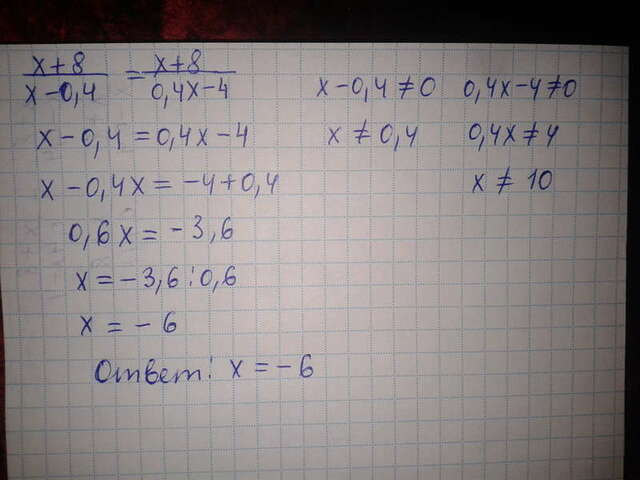 (x+8)/(x-0,4) = (x+8)/(0,4x-4)
x-0,4≠0 0,4x-4≠0
x-0,4=0,4x-4
x≠0,4 0,4x≠4
x-0,4x=-4+0,4
x≠10
0,6x=-3,6
x=-3,6:0,6
x=-6
Ответ: x=-6